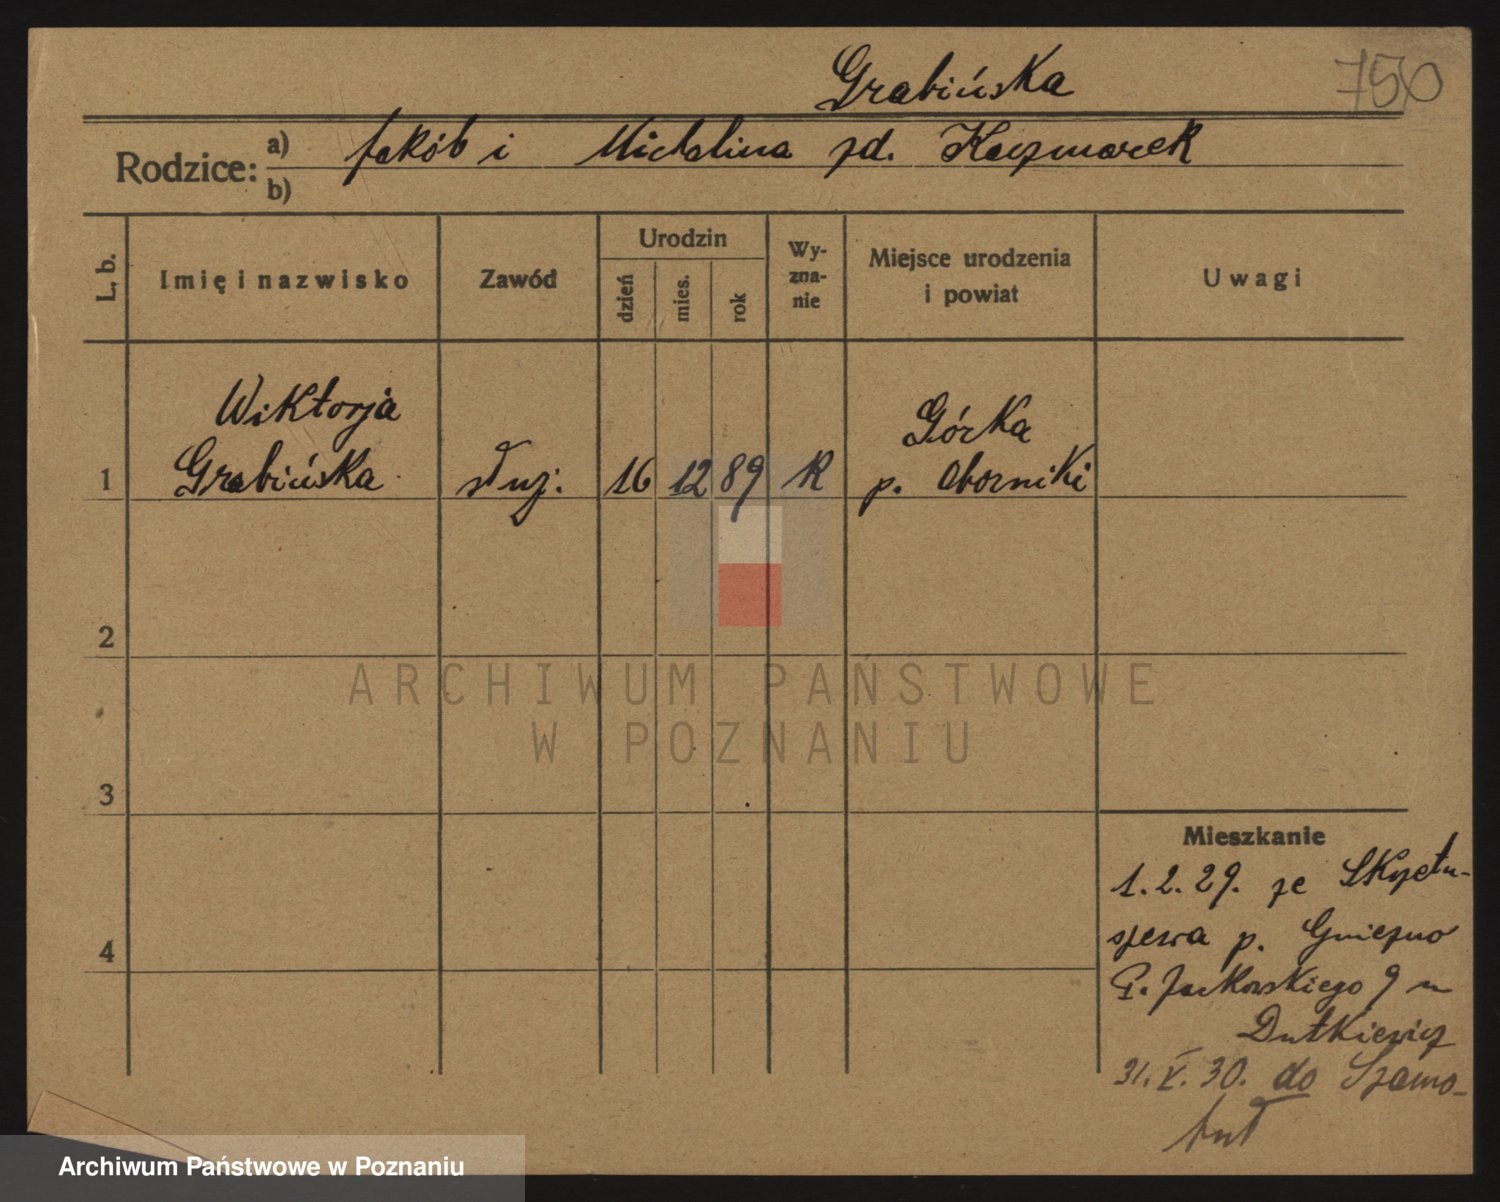 Grabińska
750
Rodzice: a) Jakób i Michalina zd. Kaczmarek
b)
L. b.
Imię i nazwisko
Zawód
Urodzin
dzień
mies.
rok
Wy-
zna-
nie
Miejsce urodzenia
i powiat
Uwagi
Wiktorja
Górka
1 Grabińska służ. 16 12 89 R p. Oborniki
2
ARCHIWUM PAŃSTWOWE
W POZNANIU
3
Mieszkanie
1.2.29. ze Skrzetu-
szewa p. Gniezno
4
P. Jackowskiego 9 u
Dutkiewicz
31.V.30. do Szamo-
tuł
Archiwum Państwowe w Poznaniu